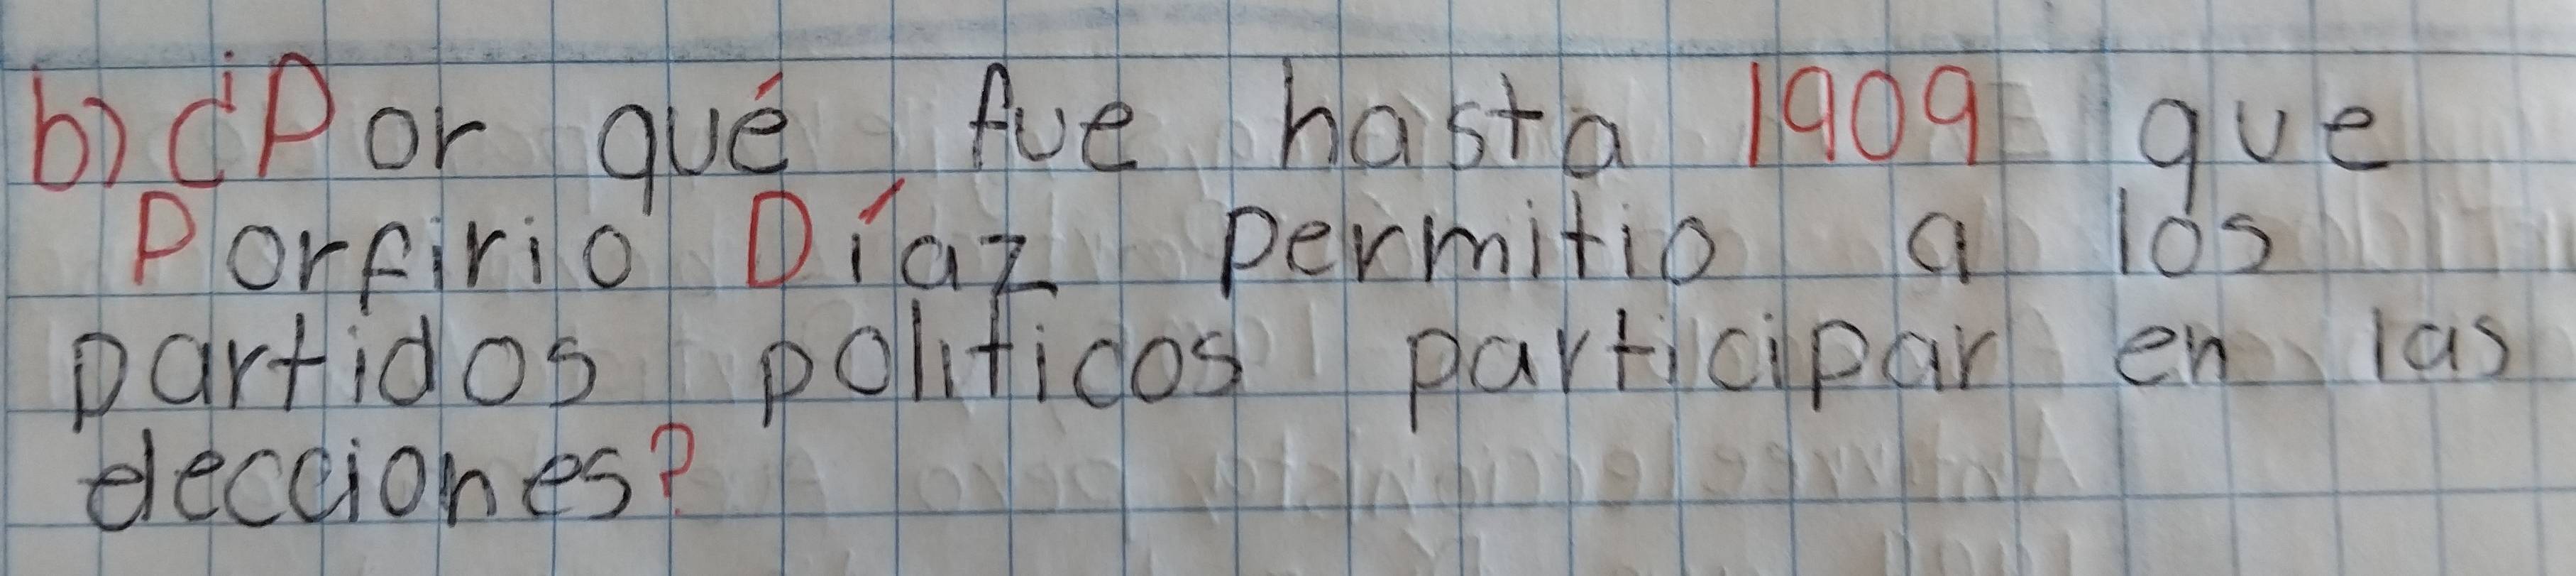 b) ¿Por qué fue hasta 1909 que
Porfirio Díaz permitio a los
partidos politicos participar en las
elecciones?